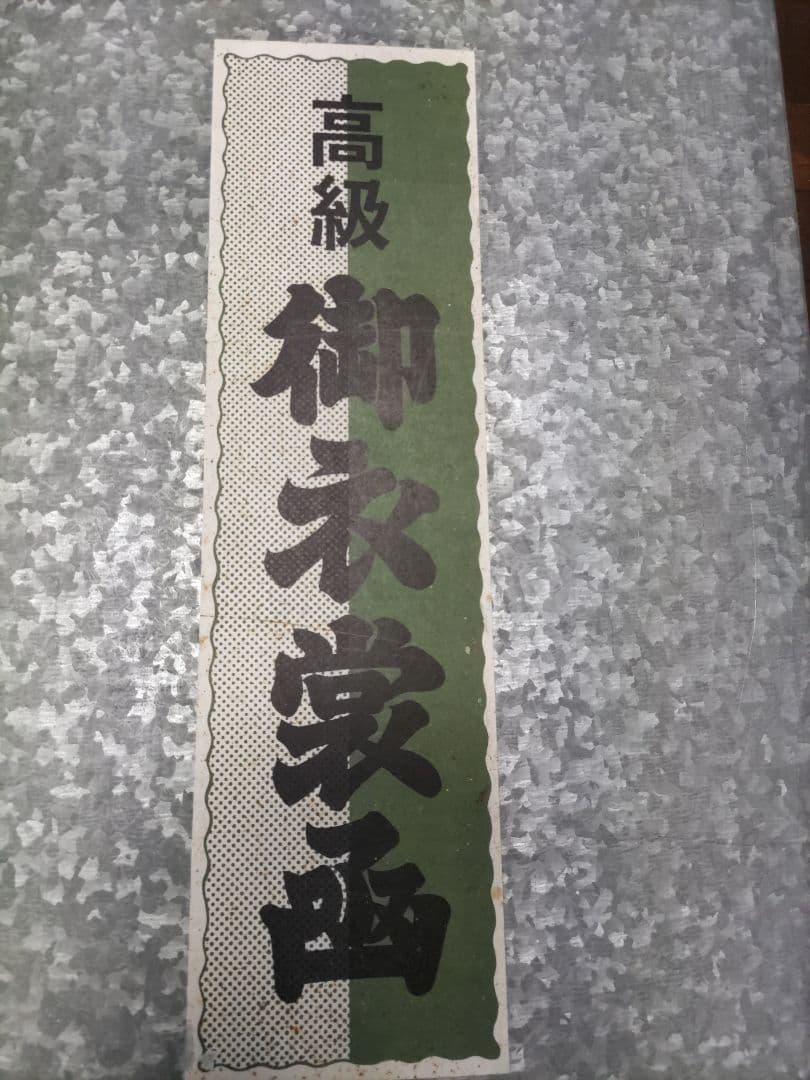 高級
御衣裳函